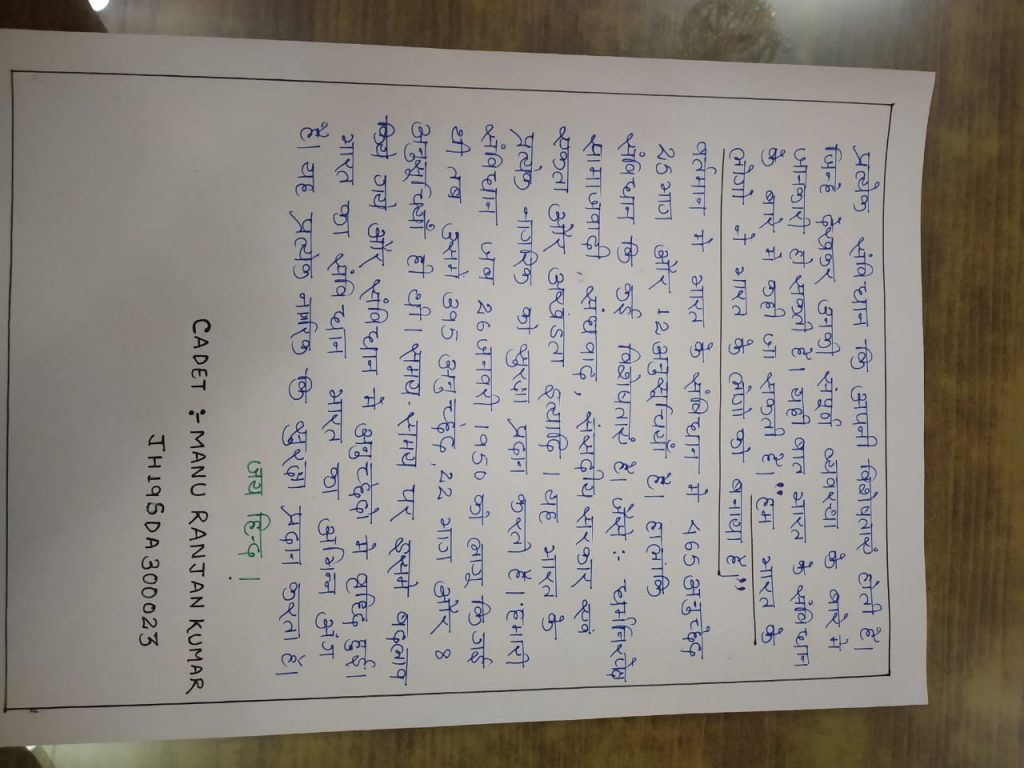 प्रत्येक संविधान कि अपनी विशेषताएं होती है।
जिन्हे देखकर उनकी संपूर्ण व्यवस्था के बारे मे
जानकारी हो सकती है। यही बात भारत के संविधान
के बारे मे कही जा सकती है। "हम भारत के
लोगो ने भारत के लोगो को बनाया है"
वर्तमान मे भारत के संविधान मे 465 अनुच्छेद
25 भाग और 12 अनुसूचियाँ है। हालांकि
संविधान कि कई विशेषताएं है। जैसे: धर्मनिरपेक्ष
सामाजवादी, संघवाद, संसदीय सरकार एवं
एकता और अखंडता इत्यादि। यह भारत के
प्रत्येक नागरिक को सुरक्षा प्रदान करती है। हमारी
संविधान जब 26 जनवरी 1950 को लागु कि गई
थी तब उसमे 395 अनुच्छेद, 22 भाग और 8
अनुसूचियाँ ही थी। समय-समय पर इसमे बदलाव
किये गये और संविधान मे अनुच्छेदो मे वृद्धि हुई।
भारत का संविधान भारत का अभिन्न अंग
है। यह प्रत्येक नागरिक कि सुरक्षा प्रदान करता है।
जय हिन्द !
CADET :- MANU RANJAN KUMAR
JH19SDA300023